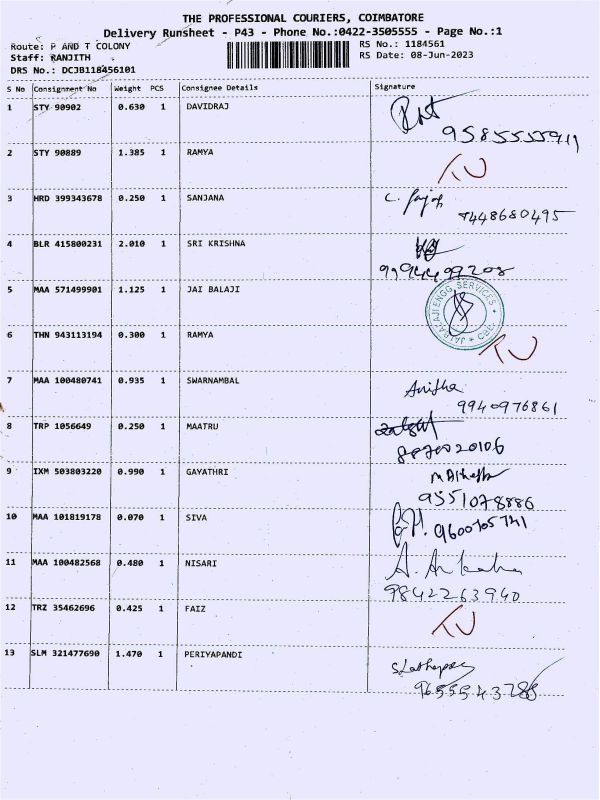 THE PROFESSIONAL COURIERS, COIMBATORE
Delivery Runsheet - P43 - Phone No.:0422-3505555 - Page No.:1
Route: P AND T COLONY
RS No.: 1184561
Staff: RANJITH
RS Date: 08-Jun-2023
DRS No.: DCJB118456101
S No Consignment No Weight PCS Consignee Details Signature
1 STY 90902 0.630 1 DAVIDRAJ
2 STY 90889 1.385 1 RAMYA TU
3 HRD 399343678 0.250 1 SANJANA
9448680495
4 BLR 415800231 2.010 1 SRI KRISHNA
9994499208
5 MAA 571499901 1.125 1 JAI BALAJI
ENGG SERVICES CBE
6 THN 943113194 0.300 1 RAMYA TU
7 MAA 100480741 0.935 1 SWARNAMBAL
9940976861
8 TRP 1056649 0.250 1 MAATRU
8870020106
9 IXM 503803220 0.990 1 GAYATHRI
9551078886
10 MAA 101819178 0.070 1 SIVA
9600705741
11 MAA 100482568 0.480 1 NISARI
9842263940
12 TRZ 35462696 0.425 1 FAIZ TU
13 SLM 321477690 1.470 1 PERIYAPANDI